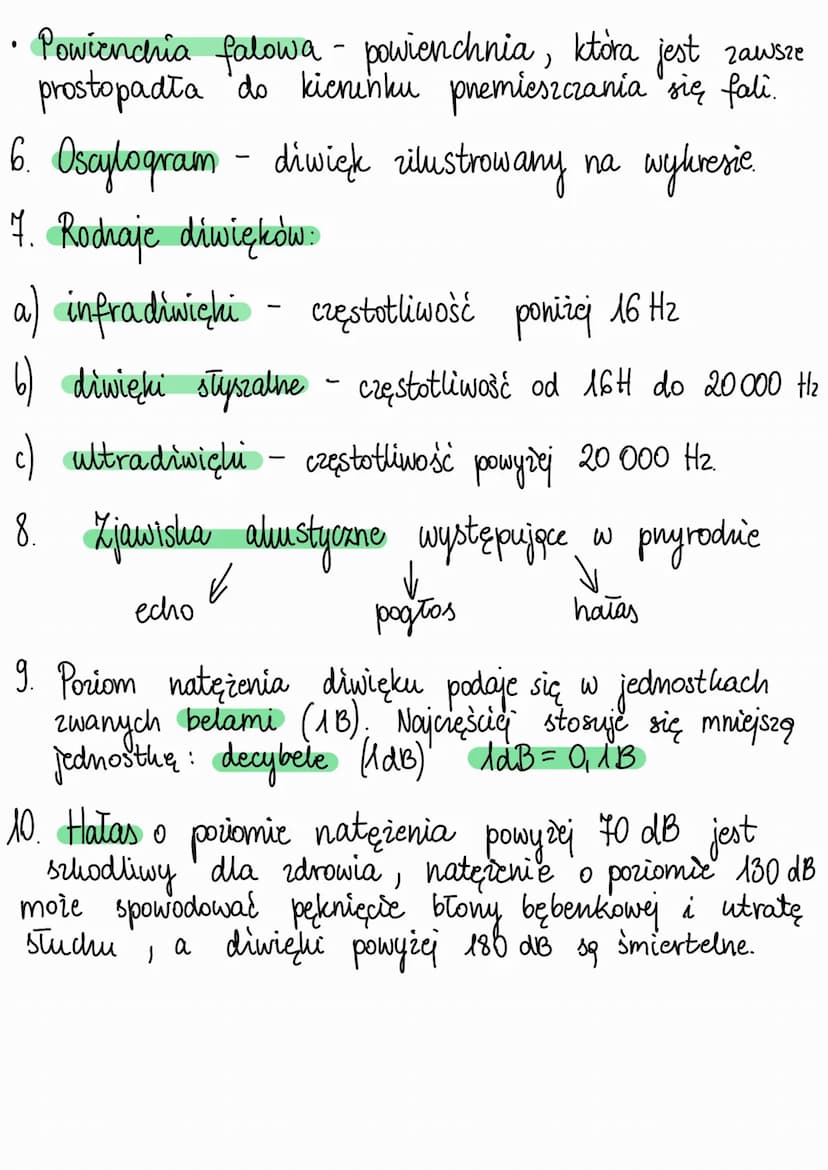 • Powierzchia falowa - powierzchnia, która jest zawsze
prostopadła do kierunku przemieszczania się fali.
6. Oscylogram - dźwięk zilustrowany na wykresie.
7. Rodzaje dźwięków:
a) infradźwięki - częstotliwość poniżej 16 Hz
b) dźwięki słyszalne - częstotliwość od 16H do 20 000 Hz
c) ultradźwięki - częstotliwość powyżej 20 000 Hz.
8. Zjawiska akustyczne występujące w przyrodzie
echo pogłos hałas
9. Poziom natężenia dźwięku podaje się w jednostkach
zwanych belami (1B). Najczęściej stosuje się mniejszą
jednostkę: decybele (1dB) 1dB = 0,1B
10. Hałas o poziomie natężenia powyżej 70 dB jest
szkodliwy dla zdrowia, natężenie o poziomie 130 dB
może spowodować pęknięcie błony bębenkowej i utratę
słuchu, a dźwięki powyżej 180 dB są śmiertelne.